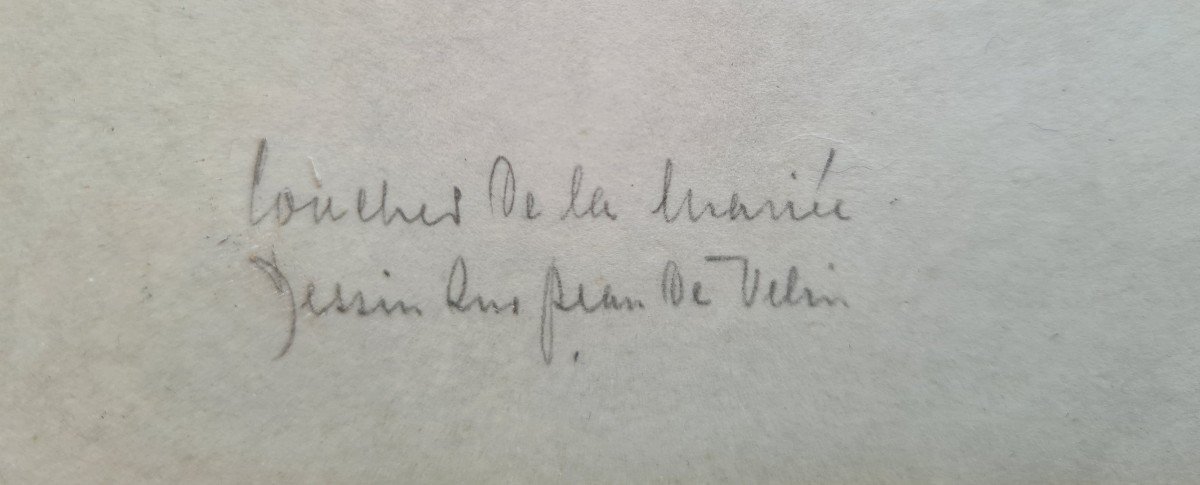 Coucher de la Mariée
Dessin sur peau de Velin